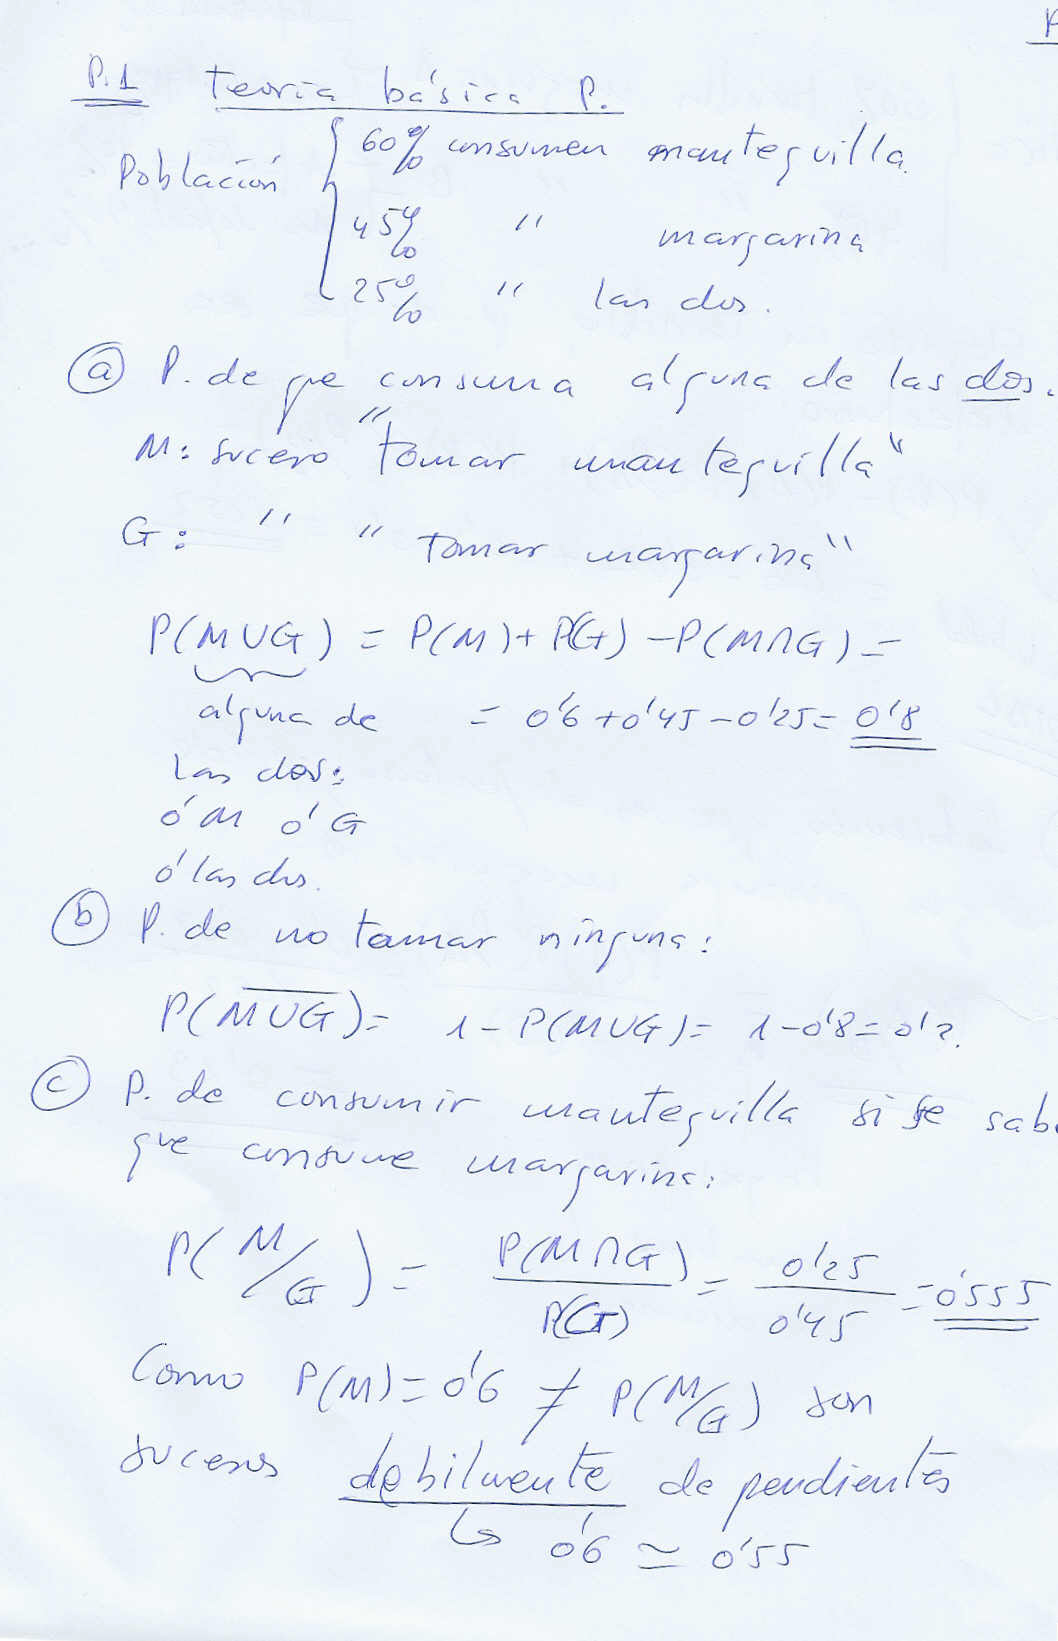 P.1 Teoría básica P.
Población { 60% consumen mantequilla.
45% " margarina
25% " las dos.
ⓐ P. de que consuma alguna de las dos.
M: suceso "tomar mantequilla"
G: " " tomar margarina"
P(M∪G) = P(M) + P(G) - P(M∩G) =
alguna de = 0'6 + 0'45 - 0'25 = 0'8
las dos:
ó M ó G
ó las dos.
ⓑ P. de no tomar ninguna:
P(M̅∪̅G̅) = 1 - P(M∪G) = 1 - 0'8 = 0'2.
ⓒ P. de consumir mantequilla si se sabe
que consume margarina:
P(M/G) = P(M∩G)/P(G) = 0'25/0'45 = 0'555
Como P(M) = 0'6 ≠ P(M/G) son
sucesos debilmente dependientes
↳ 0'6 ≃ 0'55